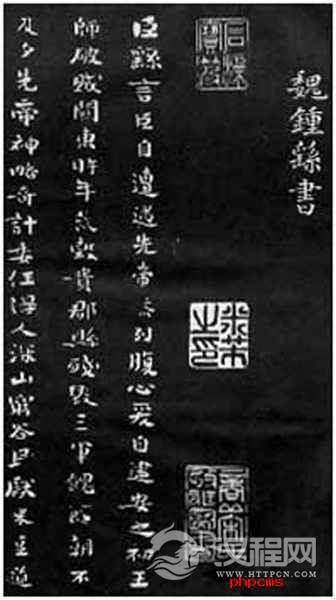 魏鍾繇書
石渠寶笈
米芾之印
臣繇言臣自遭遇先帝忝列腹心爰自建安之初王
師破賊關東時年荒穀貴郡縣殘毀三軍餽饟朝不
及夕先帝神略奇計委任得人深山窮谷民獻米豆道
汉程网
HTTPCN.COM
phpcms